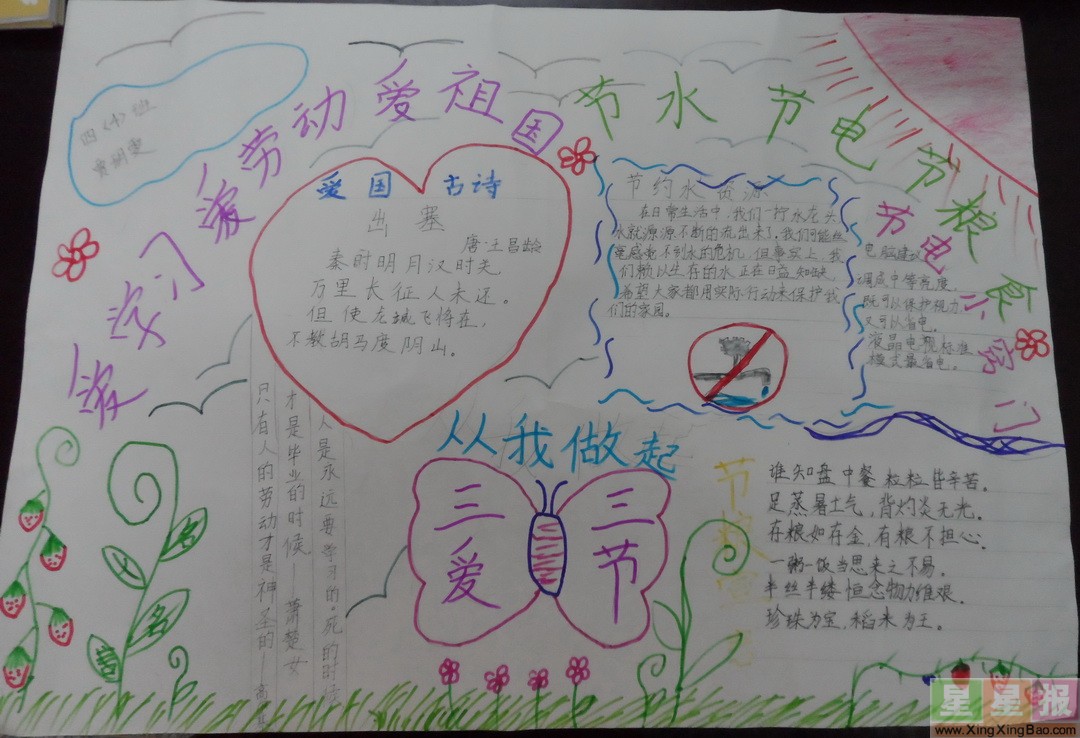 四〈4〉班
爱学习爱劳动爱祖国
节水节电节粮食
爱国 古诗
出塞
唐·王昌龄
秦时明月汉时关
万里长征人未还。
但使龙城飞将在,
不教胡马度阴山。
节约水资源
在日常生活中,我们一拧水龙头
水就源源不断的流出来了,我们可能丝
毫感觉不到水的危机,但事实上,我
们赖以生存的水正在日益
希望大家都用实际行动来保护我
们的家园。
节电小窍门
电脑建议
调成中等亮度,
既可以保护视力,
又可以省电。
液晶电视标准
模式最省电。
从我做起
三爱
三节
人是永远要学习的。死的时候
才是毕业的时候——萧楚女
只有人的劳动才是神圣的—高
谁知盘中餐 粒粒皆辛苦。
足蒸暑土气,背灼炎天光。
存粮如存金,有粮不担心。
一粥一饭当思来之不易。
半丝半缕恒念物力维艰。
珍珠为宝,稻米为王。
星星报
www.XingXingBao.com